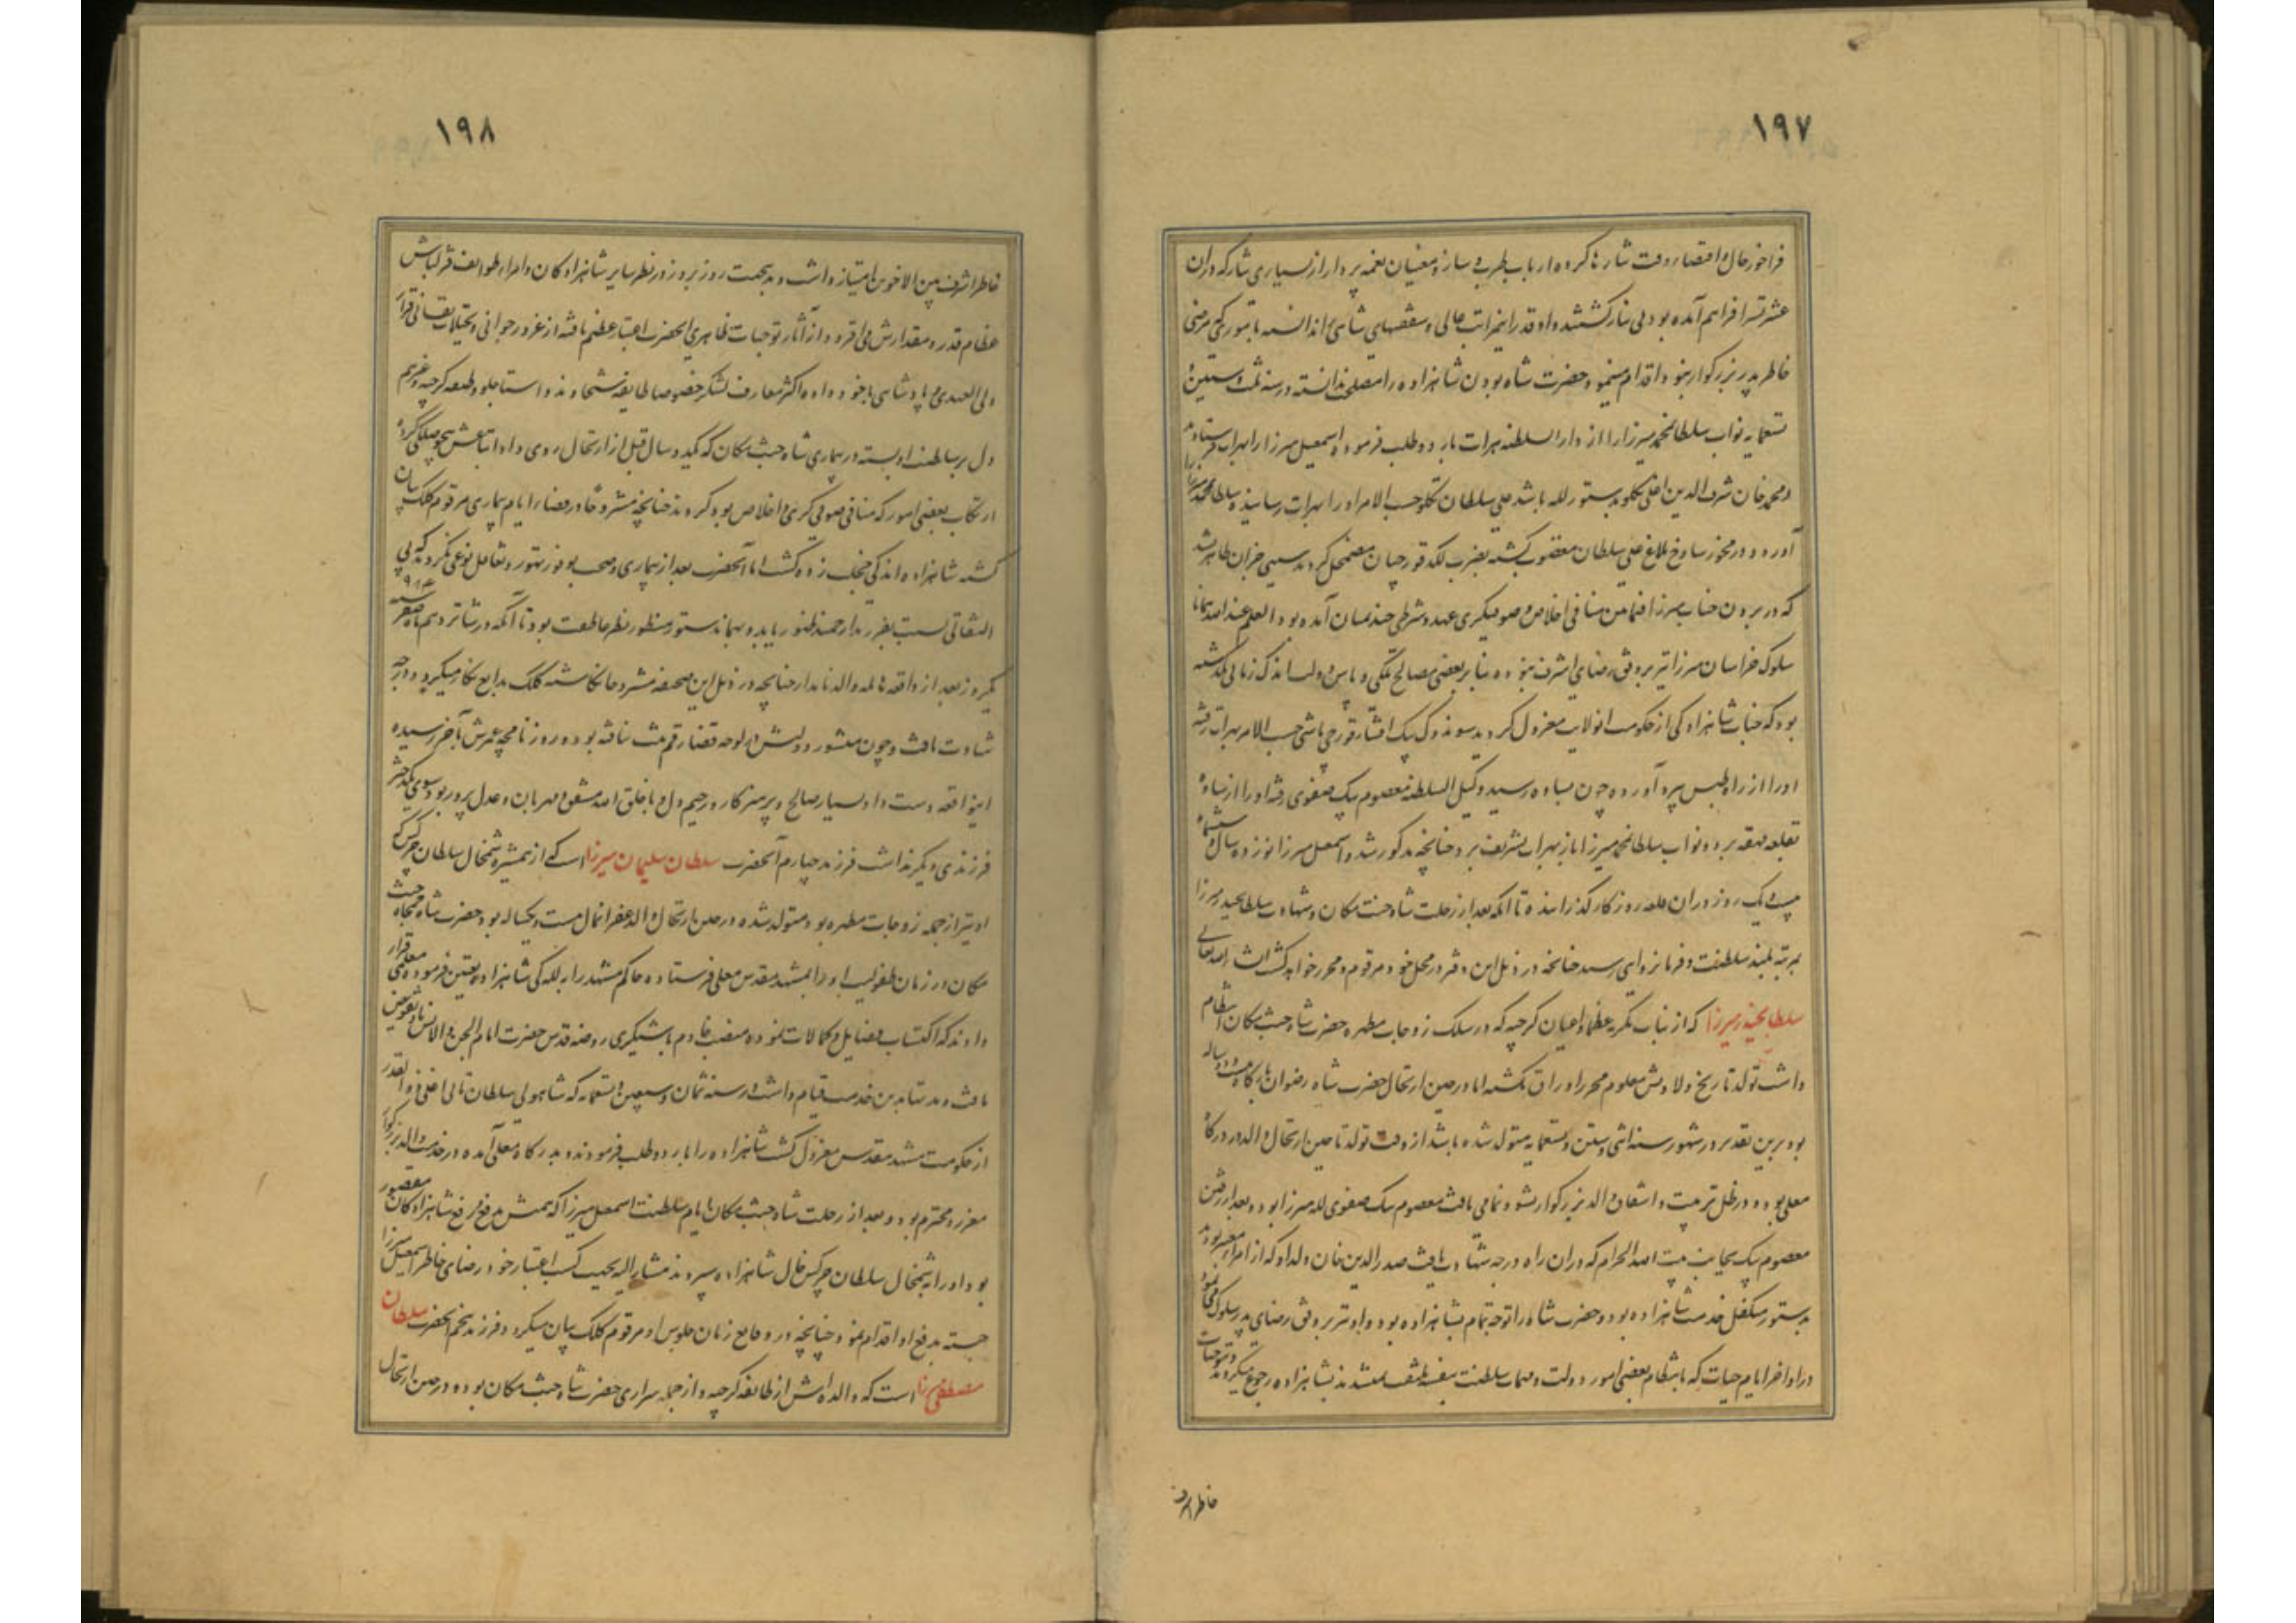 ۱۹۷
فراخور حال و اقتضاء وقت نثارها کرده ارباب طرب بی ساز و مغنیان نغمه پرداز از بسیاری نثار که در ان
عشرتسرا فراهم آمده بود بی نیاز گشتند و او قدر اینمراتب عالی و شفقتهای شاهی ندانسته بامور که مرضی
خاطر پدر بزرگوار نبود اقدام مینمود حضرت شاه بودن شاهزاده را مصلحت ندانسته در سنه ثلث و ستین و
تسعمایه نواب سلطان محمد میرزا را از دار السلطنه هرات باردو طلب فرموده اسمعیل میرزا را بهرات فرستادند
و محمد خان شرف الدین اغلی تکلو بدستور لله باشد علی سلطان تکلو حسب الامر او را بهرات رسانیده سلطان محمد میرزا را
آورده و در محوز ساوخ بلاغ علی سلطان مغضوب گشته بضرب لکد قورچیان مضمحل گردید سببی جز ان ظاهر نشد
که در بردن جناب میرزا فیمابین منافی اخلاص و صوفیگری عهد و شرطی چند بمیان آمده بود العلم عند الله همانا
سلوک خراسان میرزا نیز بر وفق رضای اشرف نبوده بنابر بعضی مصالح ملکی و پاس دولت اندک زمانی نگذشته
بود که جناب شاهزادگی از حکومت انولایت معزول گردید سوندوک بیک افشار قورچی باشی حسب الامر بهرات رفته
او را از راه طبس بیرون آورده چون بساوه رسید وکیل السلطنه معصوم بیک صفوی رفته او را از ساوه
بقلعه قهقهه برده و نواب سلطان محمد میرزا باز بهرات تشریف برد چنانچه مذکور شد و اسمعیل میرزا نوزده سال و ششماه
و بیست و یک روز در ان قلعه روزگار گذرانیده تا آنکه بعد از رحلت شاه جنت مکان و شهادت سلطان حیدر میرزا
بمرتبه بلند سلطنت و فرمانروایی رسید چنانچه در ذیل این دفتر در محل خود مرقوم و محرر خواهد گشت انشاء الله تعالی
سلطان حیدر میرزا که از بنات مکرمه عظما و اعیان کرجیه که در سلک زوجات مطهره حضرت شاه جنت مکان انتظام
داشت تولد تاریخ ولادتش معلوم محرر اوراق نگشته اما در حین ارتحال حضرت شاه رضوان بارگاه بیست و دو ساله
بود برین تقدیر در شهور سنه اثنی و ستین و تسعمایه متولد شده باشد از وقت تولد تا حین ارتحال والد در درگاه
معلی بوده در ظل تربیت و اشفاق والد بزرگوار نشو و نمای یافت معصوم بیک صفوی لله میرزا بود و بعد از رفتن
معصوم بیک بجانب بیت الله الحرام که در ان راه درجه شهادت یافت صدر الدین خان ولد او که از امراء معتبر بود
بدستور متکفل خدمت شاهزاده بود و حضرت شاه را توجه تمام بشاهزاده بود و او نیز بر وفق رضای پدر سلوک مینمود
در اواخر ایام حیات که بانتظام بعضی امور دولت و مهمات سلطنت بنفسه ملتفت نمیشدند بشاهزاده رجوع میگردند
خاطر اشرف
۱۹۸
خاطر اشرف من بین الاخوین امتیاز داشت و بدینجهت روز بروز در نظر سایر شاهزادگان و امراء طوایف قزلباش
عظام قدر و مقدارش می افزود و از آثار توجهات ظاهری انحضرت اعتبار عظیم یافته از غرور جوانی و تخیلات نفسانی قرار
ولی العهدی و پادشاهی باخود داده اکثر معارف لشکر خصوصا طایفه شیخاوند و استاجلو و طبقه کرجیه و غیرهم
دل بر سلطنت او بسته در بیماری شاه جنت مکان که یکدو سال قبل از ارتحال روی داد اتباعش بیحوصلگی کرده
ارتکاب بعضی امور که منافی صوفی گری و اخلاص بود کردند چنانچه مشروحا در قضایاء ایام بیماری مرقوم کلک بیان
گشته شاهزاده اندکی خجلت زده گشت اما آنحضرت بعد از بیماری و صحت بوفور تهور و تغافل نوعی نکردند که بی
التفاتی نسبت بفرزند ارجمند بظهور یابد و بهمان دستور منظور نظر عاطفت بود تا آنکه در شانزدهم ماه صفر ۹۸۴
یکروز بعد از واقعه هایله والد نامدار چنانچه در ذیل این صحیفه مشروحا نگاشته کلک بدایع نگار میگردد درجه
شهادت یافت و چون منشور دولتش در لوحه قضا رقم ثبت نیافته بود روزنامچه عمرش بآخر رسیده
اینواقعه دست داد بسیار صالح و پرهیزکار و رحیم دل و باخلق الله مشفق و مهربان و عدل پرور بود سوی یکدختر
فرزندی دیگر نداشت فرزند چهارم آنحضرت سلطان سلیمان میرزا است که از همشیره شمخال سلطان چرکس که
او نیز از جمله زوجات مطهره بود متولد شده در حین ارتحال والد غفران مآل بیست و یکساله بود حضرت شاه جمجاه جنت
مکان در زمان طفولیت او را بمشهد مقدس معلی فرستاده حاکم مشهد را به للگی شاهزاده تعیین فرموده معلمی قرار
دادند که اکتساب فضایل و کمالات نموده منصب خادم باشیگری روضه قدس حضرت امام الجن و الانس باو تفویض
یافت و مدتها بدین خدمت قیام داشت در سنه ثمان و سبعین و تسعمایه که شاهولی سلطان تاتی اغلی ذو القدر
از حکومت مشهد مقدس معزول گشت شاهزاده را باردو طلب فرمودند و بدرگاه معلی آمده در خدمت والد بزرگوار
معزز و محترم بود و بعد از رحلت شاه جنت مکان تا ایام سلطنت اسمعیل میرزا که همتش بدفع و رفع شاهزادگان مقصور
بود او را به شمخال سلطان چرکس خال شاهزاده سپردند مشار الیه بجهت کسب اعتبار خود رضای خاطر اسمعیل میرزا
جسته بدفع او اقدام نمود چنانچه در وقایع زمان جلوس او مرقوم کلک بیان میگردد فرزند پنجم انحضرت سلطان
مصطفی میرزا است که والده اش از طایفه کرجیه و از جمله سراری حضرت شاه جنت مکان بوده و در حین ارتحال